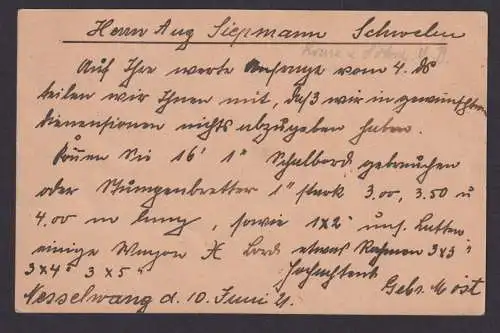 Herrn Aug Siepmann Schwelm
Auf Ihre werte Anfrage vom 4. ds
teilen wir Ihnen mit, daß wir in gewünschten
dimensionen nichts abzugeben haben.
Können Sie 16' 1" Schalbord gebrauchen
oder Stumgenbretter 1" stark 3.00, 3.50 u
4.00 m lang, sowie 1x2" Latten
einige Wagon Bords etwas Rahmen 3x3"
3x4" 3x5" Hochachtend
Nesselwang d. 10. Juni 21. Gebr. Most